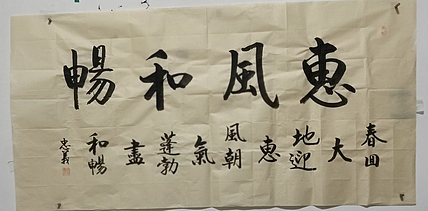 惠風和暢
春回
大
地迎
惠
風朝
氣
蓬勃
盡
和暢
忠義